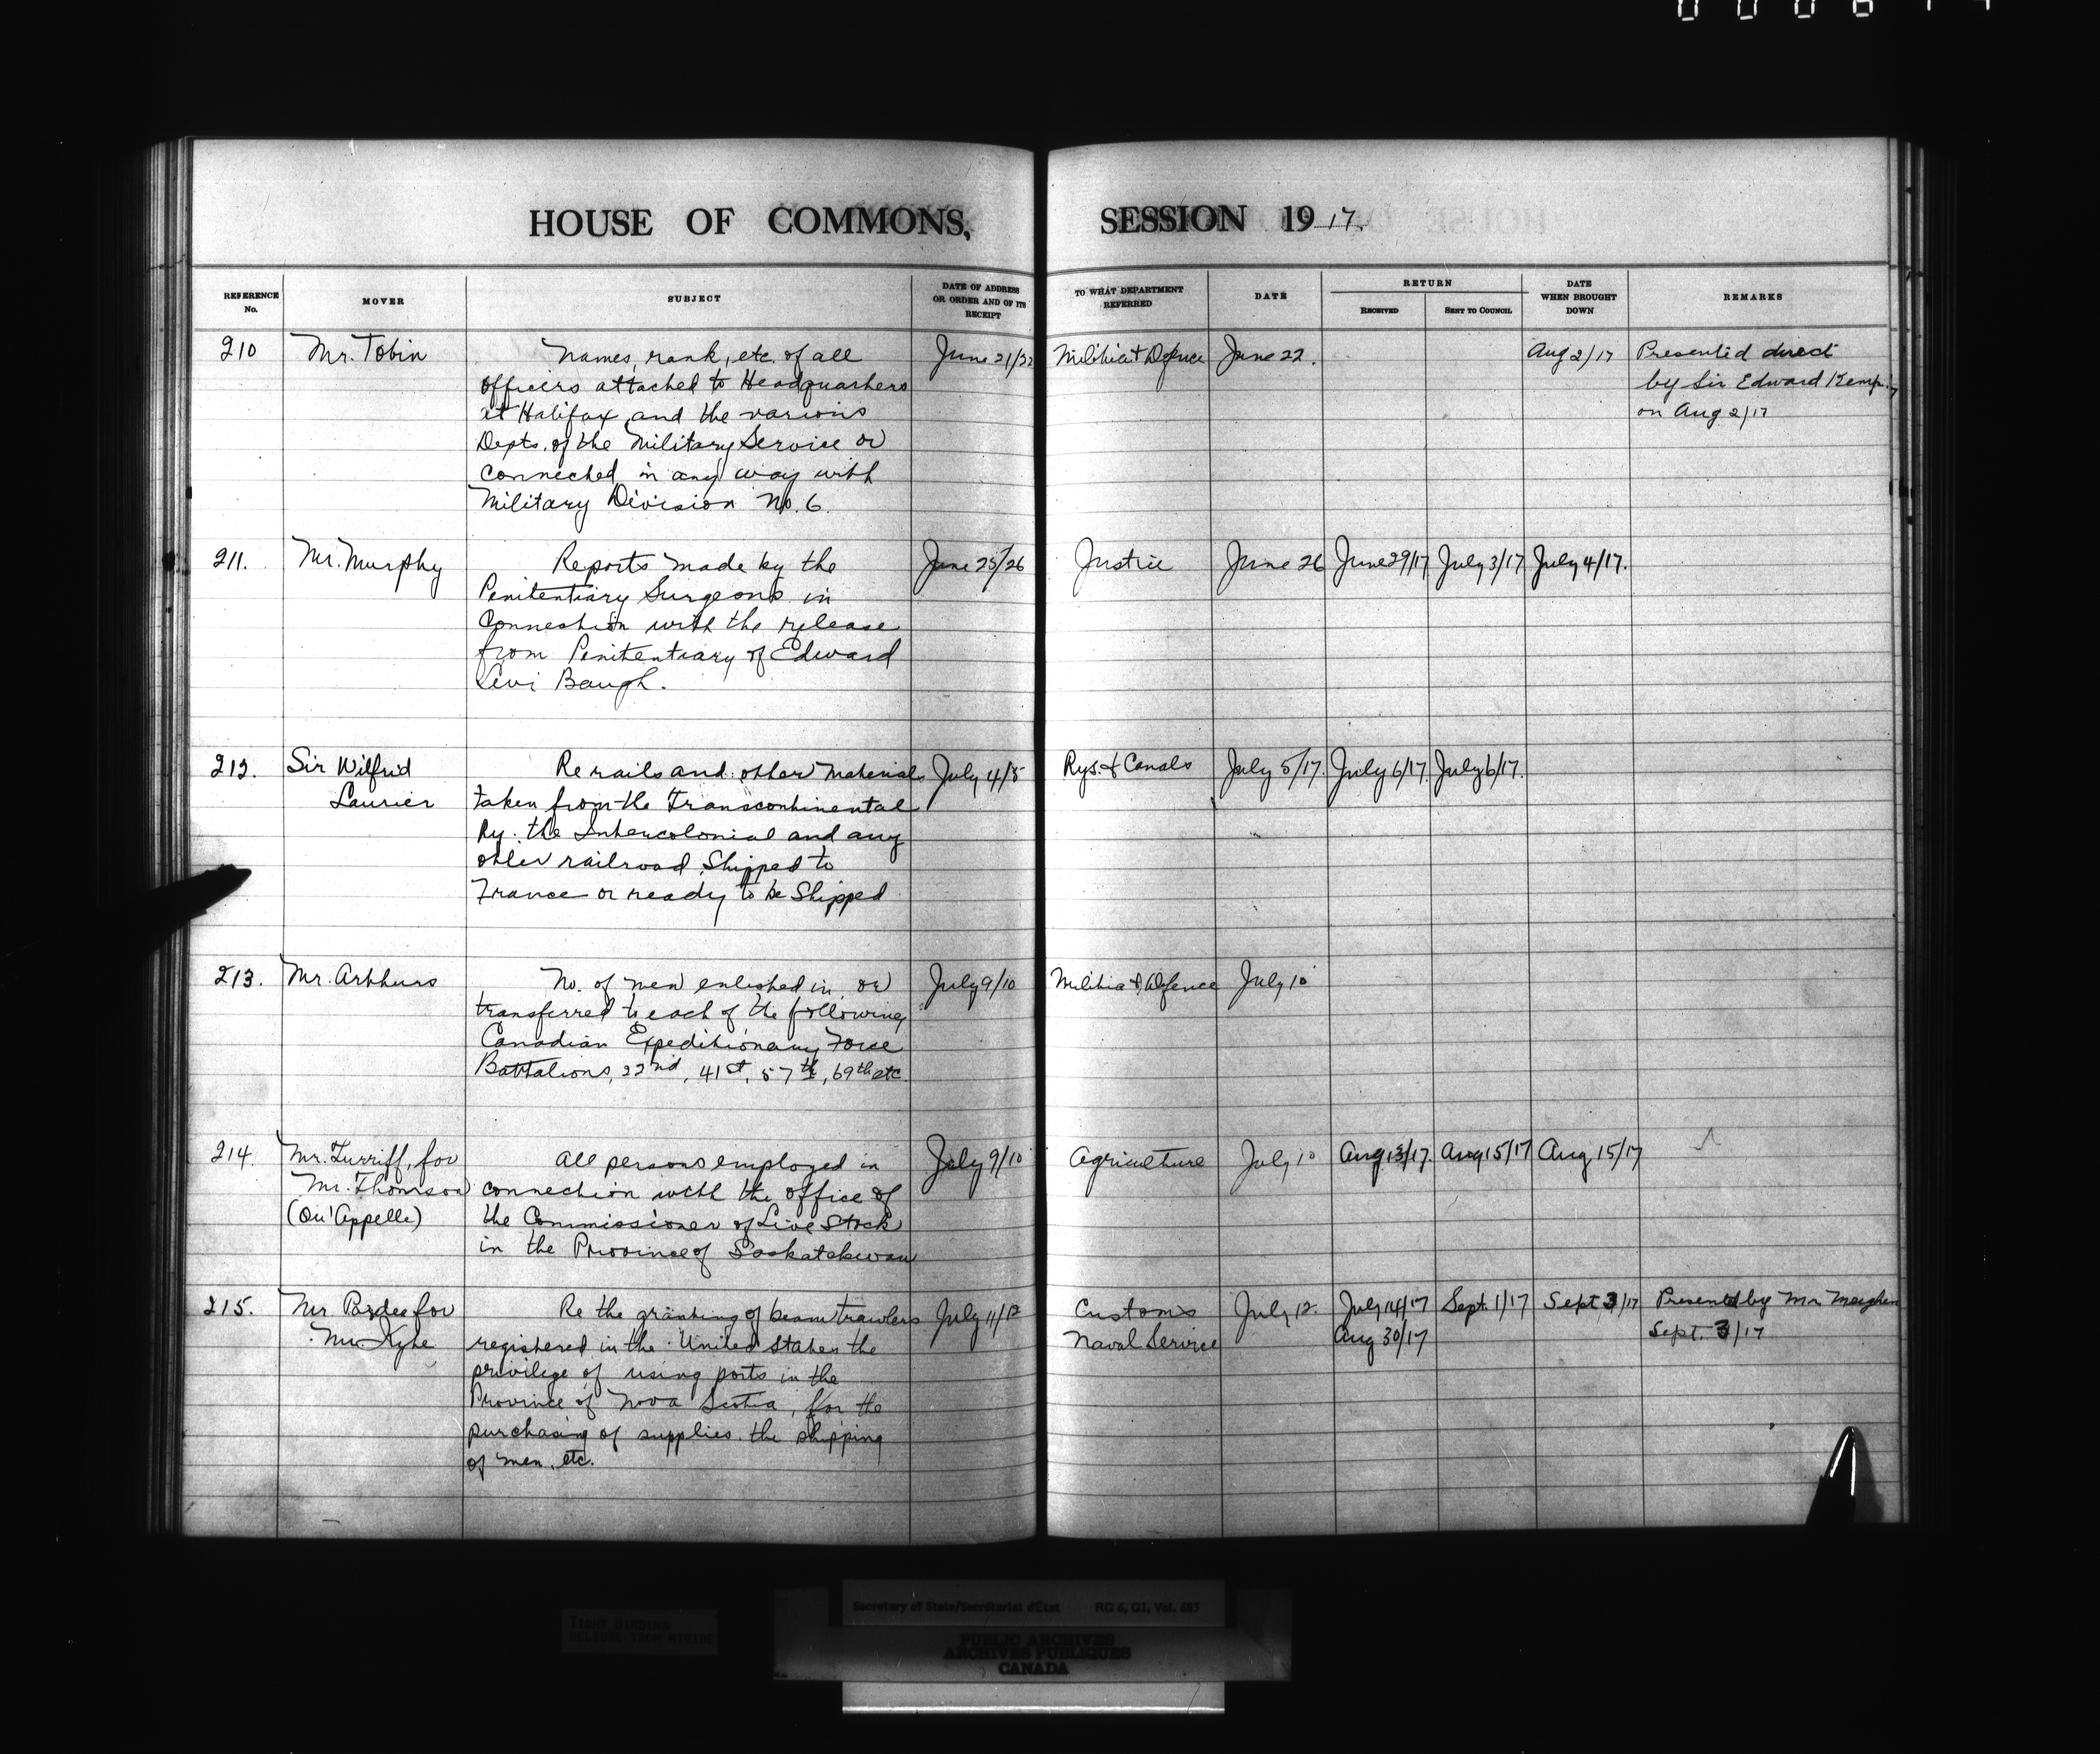 HOUSE OF COMMONS,
SESSION 1917.
REFERENCE No.
MOVER
SUBJECT
DATE OF ADDRESS OR ORDER AND OF ITS RECEIPT
TO WHAT DEPARTMENT REFERRED
DATE
RETURN
RECEIVED
SENT TO COUNCIL
DATE WHEN BROUGHT DOWN
REMARKS
210
Mr. Tobin
Names, rank, etc. of all
officers attached to Headquarters
at Halifax, and the various
Depts. of the Military Service or
connected in any way with
Military Division No. 6.
June 21/22
Militia & Defence
June 22.
Aug 2/17
Presented direct
by Sir Edward Kemp
on Aug 2/17
211.
Mr. Murphy
Reports made by the
Penitentiary Surgeons in
Connection with the release
from Penitentiary of Edward
Levi Baugh.
June 25/26
Justice
June 26
June 29/17
July 3/17
July 4/17.
212.
Sir Wilfrid
Laurier
Re rails and other materials
taken from the Transcontinental
Ry. the Intercolonial and any
other railroad, Shipped to
France or ready to be Shipped
July 4/5
Rys. & Canals
July 5/17.
July 6/17
July 6/17.
213.
Mr. Arthurs
No. of men enlisted in, or
transferred to each of the following
Canadian Expeditionary Force
Battalions, 22nd, 41st, 57th, 69th etc.
July 9/10
Militia & Defence
July 10
214.
Mr. Turriff, for
Mr. Thomson
(Qu'Appelle)
All persons employed in
connection with the office of
the Commissioner of Live Stock
in the Province of Saskatchewan
July 9/10
Agriculture
July 10
Aug 13/17.
Aug 15/17
Aug 15/17
215.
Mr. Pardee for
Mr. Kyte
Re the granting of beam trawlers
registered in the United States the
privilege of using ports in the
Province of Nova Scotia, for the
purchasing of supplies, the shipping
of men, etc.
July 11/12
Customs
Naval Service
July 12.
July 14/17
Aug 30/17
Sept. 1/17
Sept 3/17
Presented by Mr Meighen
Sept. 3/17
TIGHT BINDING
Secretary of State/Secrétariat d'État RG 6, G1, Vol. 683
PUBLIC ARCHIVES
ARCHIVES PUBLIQUES
CANADA